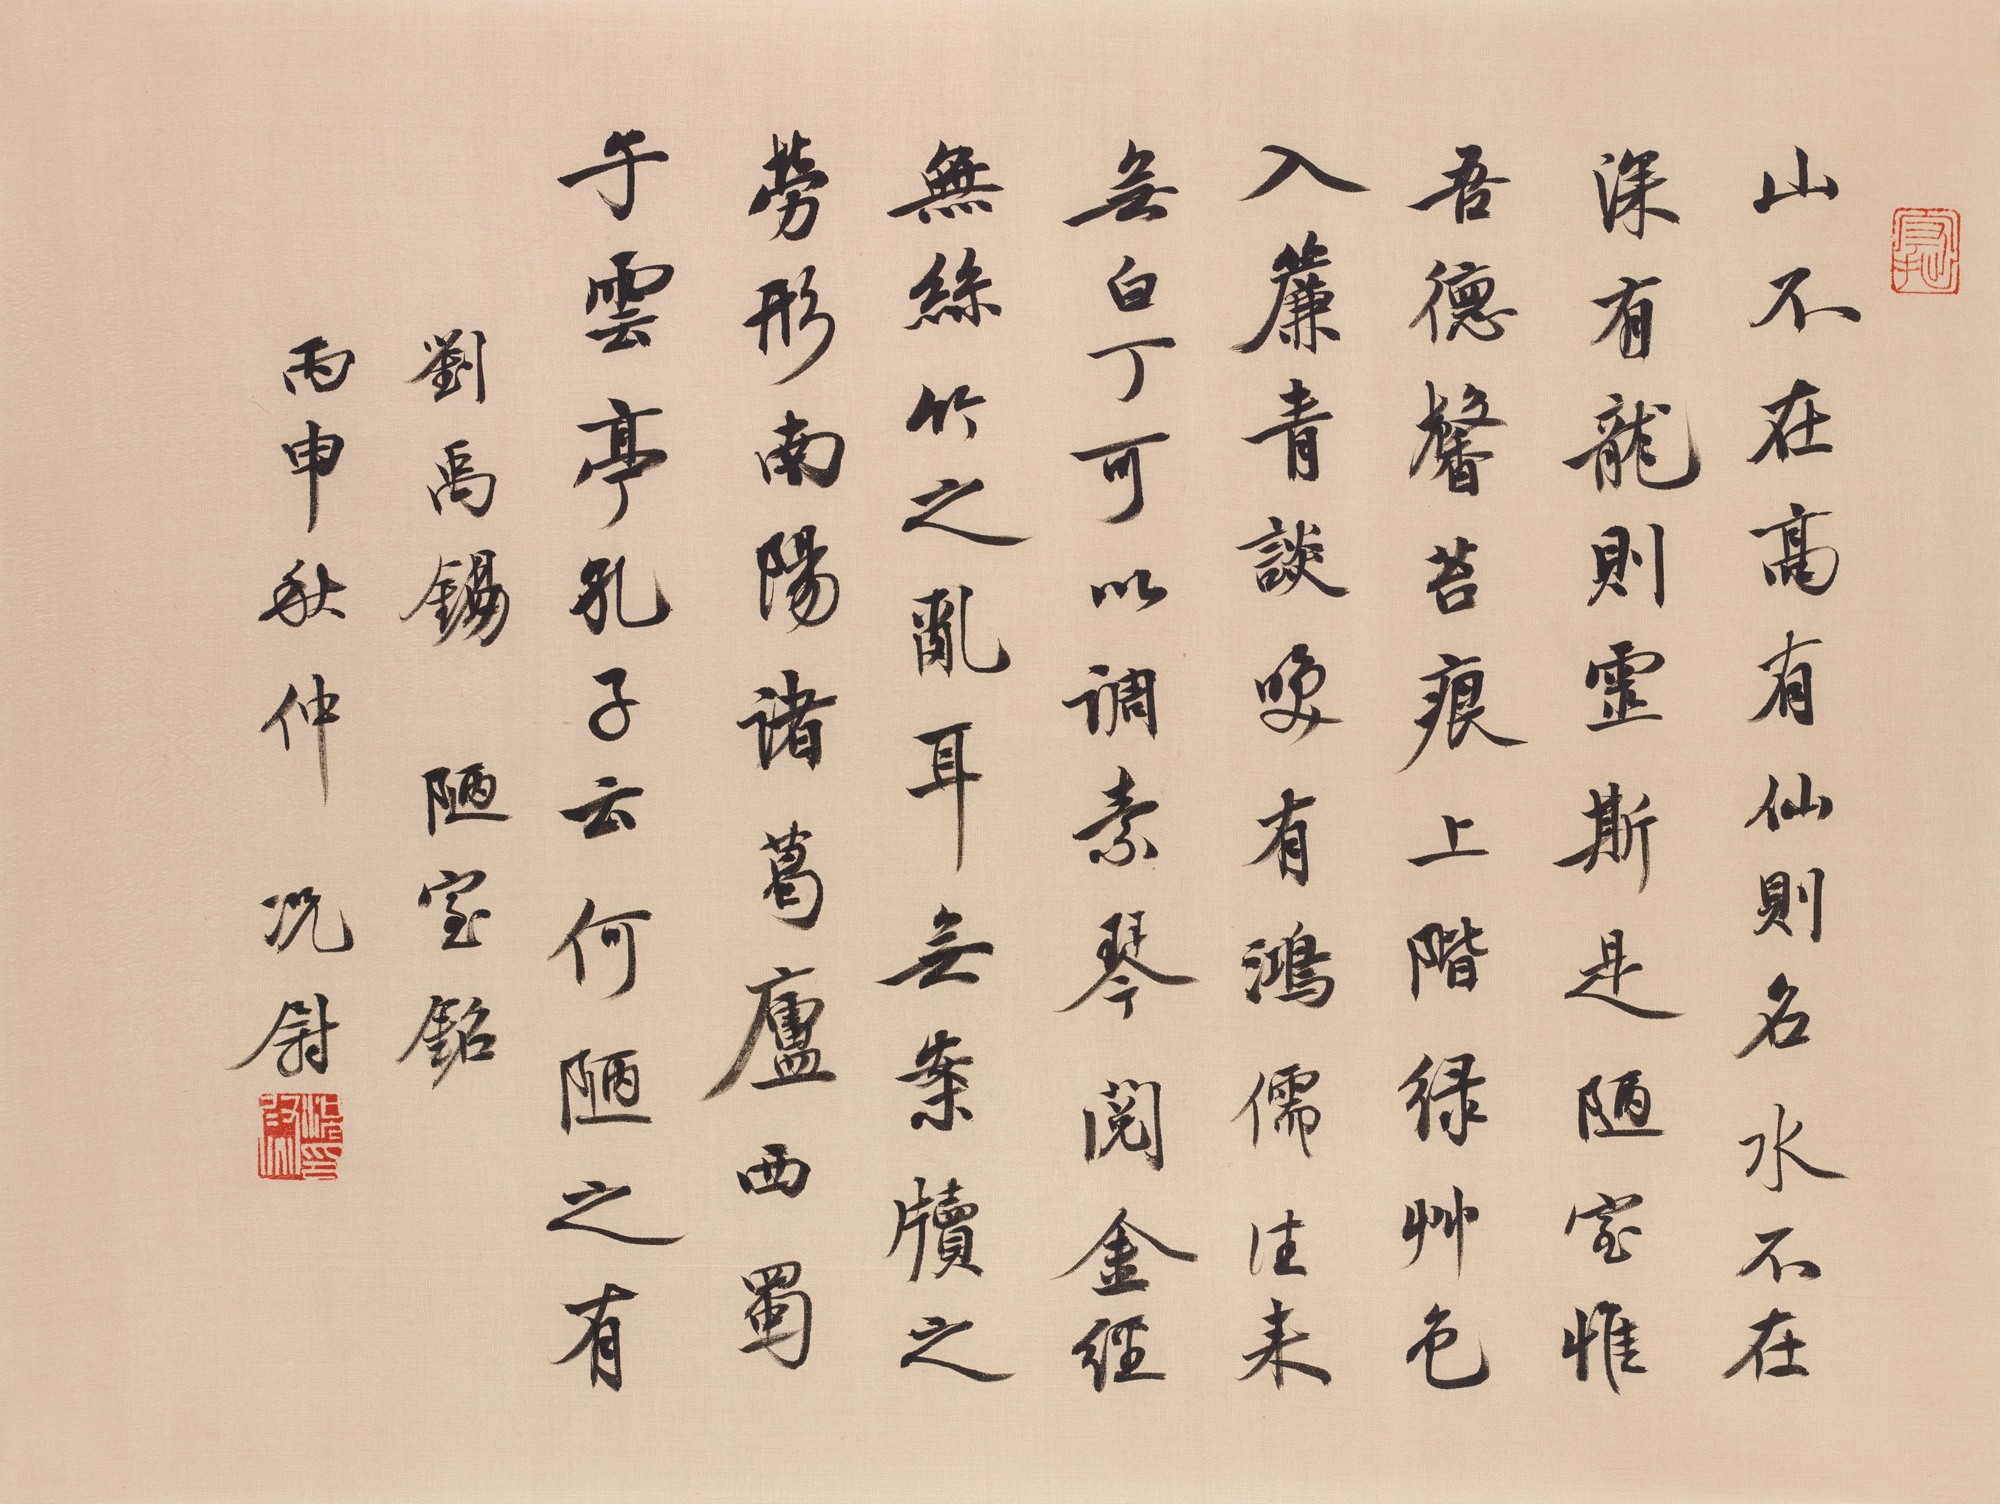 山不在高有仙則名水不在
深有龍則霊斯是陋室惟
吾德馨苔痕上階緑艸色
入簾青談咲有鴻儒往来
无白丁可以調素琴閲金經
無絲竹之亂耳无案牘之
勞形南陽諸葛廬西蜀
子雲亭孔子云何陋之有
劉禹錫 陋室銘
丙申秋仲 况尉